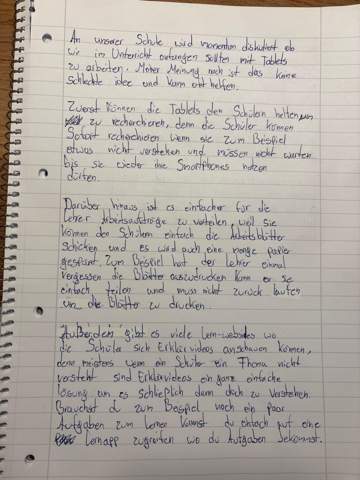 An unserer Schule wird momentan diskutiert ob
wir im Unterricht anfangen sollten mit Tablets
zu arbeiten. Meiner Meinung nach ist das keine
schlechte idee und kann oft helfen.
Zuerst können die Tablets den Schülern helfen um
zu recherchieren, denn die Schüler können
Sofort recherchieren wenn sie zum Beispiel
etwas nicht verstehen und müssen nicht warten
bis sie wieder ihre Smartphones nutzen
dürfen.
Darüber hinaus ist es einfacher für die
Lehrer Arbeitsaufträge zu verteilen, weil sie
können den Schülern einfach die Arbeitsblätter
schicken und es wird auch eine menge papier
gespart. Zum Beispiel hat der Lehrer einmal
vergessen die Blätter auszudrucken kann er sie
einfach teilen und muss nicht zurück laufen
um die Blätter zu drucken.
Außerdem gibt es viele Lern-websites wo
die Schüler sich Erklärvideos anschauen können,
denn meistens wenn ein Schüler ein Thema nicht
versteht sind Erklärvideos ein ganz einfache
lösung um es schließlich dann doch zu verstehen.
Brauchst du zum Beispiel noch ein paar
Aufgaben zum lernen kannst du einfach auf eine
Lernapp zugreifen wo du Aufgaben bekommst.